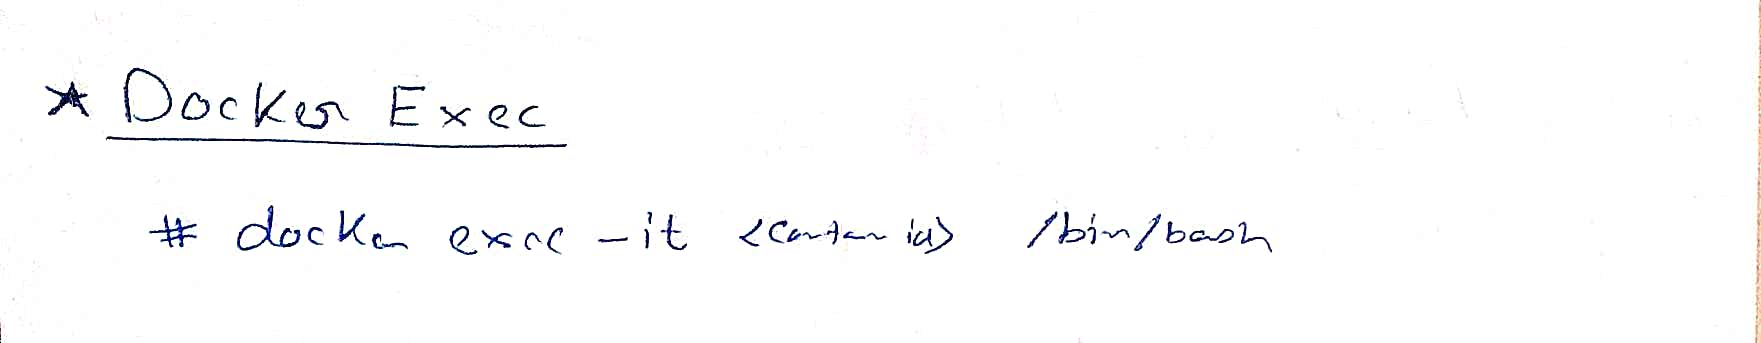 * Docker Exec
# docker exec -it <contan id> /bin/bash